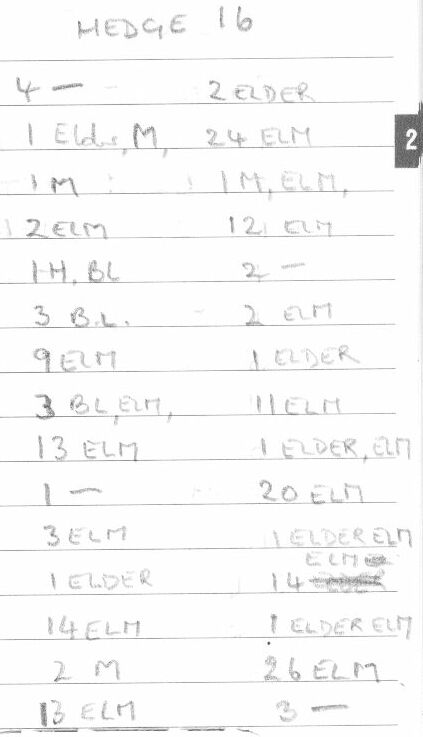 HEDGE 16
4 — 2 ELDER
1 Elder, M, 24 ELM
1 M 1 M, ELM,
2 ELM 12 ELM
1 H. BL 2 —
3 B.L. 2 ELM
9 ELM 1 ELDER
3 BL, ELM, 11 ELM
13 ELM 1 ELDER, ELM
1 — 20 ELM
3 ELM 1 ELDER ELM
1 ELDER 14 ELM
14 ELM 1 ELDER ELM
2 M 26 ELM
13 ELM 3 —
2